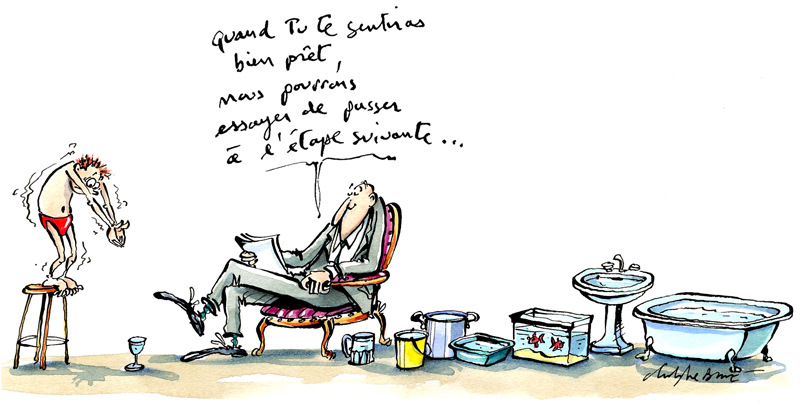 Quand Tu te sentiras
bien prêt,
nous pourrons
essayer de passer
à l'étape suivante...